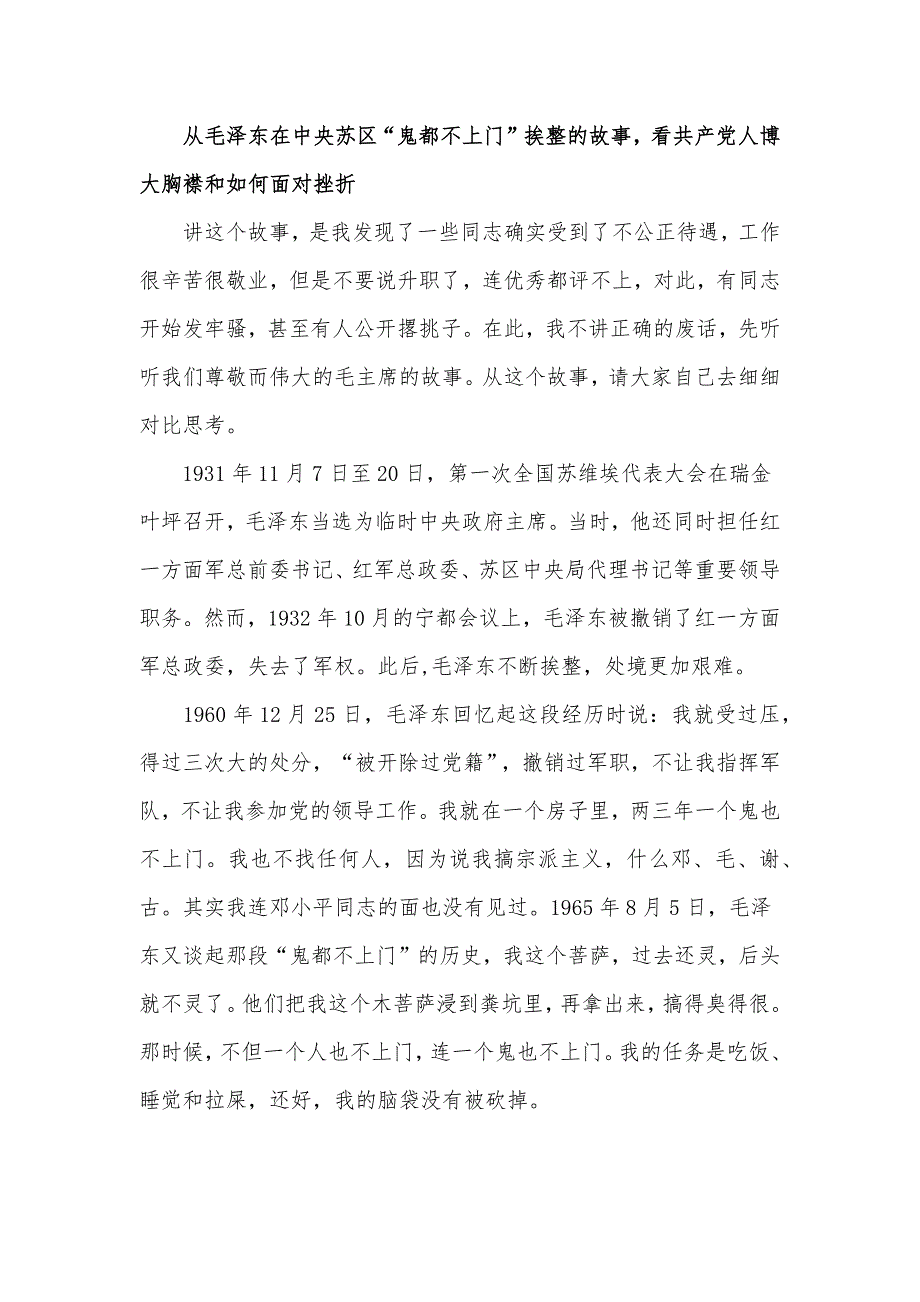 从毛泽东在中央苏区“鬼都不上门”挨整的故事，看共产党人博
大胸襟和如何面对挫折
讲这个故事，是我发现了一些同志确实受到了不公正待遇，工作
很辛苦很敬业，但是不要说升职了，连优秀都评不上，对此，有同志
开始发牢骚，甚至有人公开撂挑子。在此，我不讲正确的废话，先听
听我们尊敬而伟大的毛主席的故事。从这个故事，请大家自己去细细
对比思考。
1931 年 11 月 7 日至 20 日，第一次全国苏维埃代表大会在瑞金
叶坪召开，毛泽东当选为临时中央政府主席。当时，他还同时担任红
一方面军总前委书记、红军总政委、苏区中央局代理书记等重要领导
职务。然而，1932 年 10 月的宁都会议上，毛泽东被撤销了红一方面
军总政委，失去了军权。此后,毛泽东不断挨整，处境更加艰难。
1960 年 12 月 25 日，毛泽东回忆起这段经历时说：我就受过压，
得过三次大的处分，“被开除过党籍”，撤销过军职，不让我指挥军
队，不让我参加党的领导工作。我就在一个房子里，两三年一个鬼也
不上门。我也不找任何人，因为说我搞宗派主义，什么邓、毛、谢、
古。其实我连邓小平同志的面也没有见过。1965 年 8 月 5 日，毛泽
东又谈起那段“鬼都不上门”的历史，我这个菩萨，过去还灵，后头
就不灵了。他们把我这个木菩萨浸到粪坑里，再拿出来，搞得臭得很。
那时候，不但一个人也不上门，连一个鬼也不上门。我的任务是吃饭、
睡觉和拉屎，还好，我的脑袋没有被砍掉。